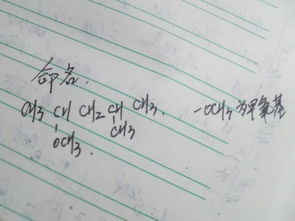 命名:
CH3 CH CH2 CH CH3. -OCH3为甲氧基
OCH3. CH3